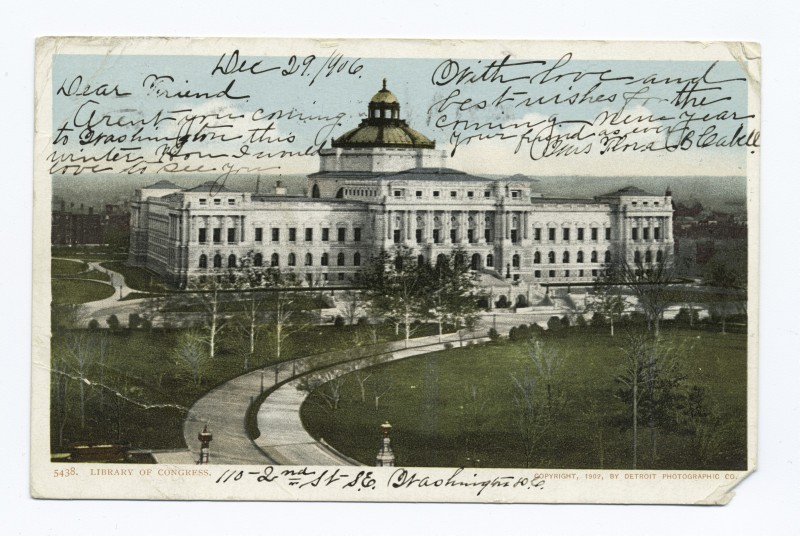 Dec 29/1906.
Dear Friend
Arent you coming
to Washington this
winter. How I would
love to see you
With love and
best wishes for the
coming New Year
your friend as ever
Flora B Cakell
5438. LIBRARY OF CONGRESS.
110-2nd St- S.E. Washington D.C.
COPYRIGHT, 190 , BY DETROIT PHOTOGRAPHIC CO.